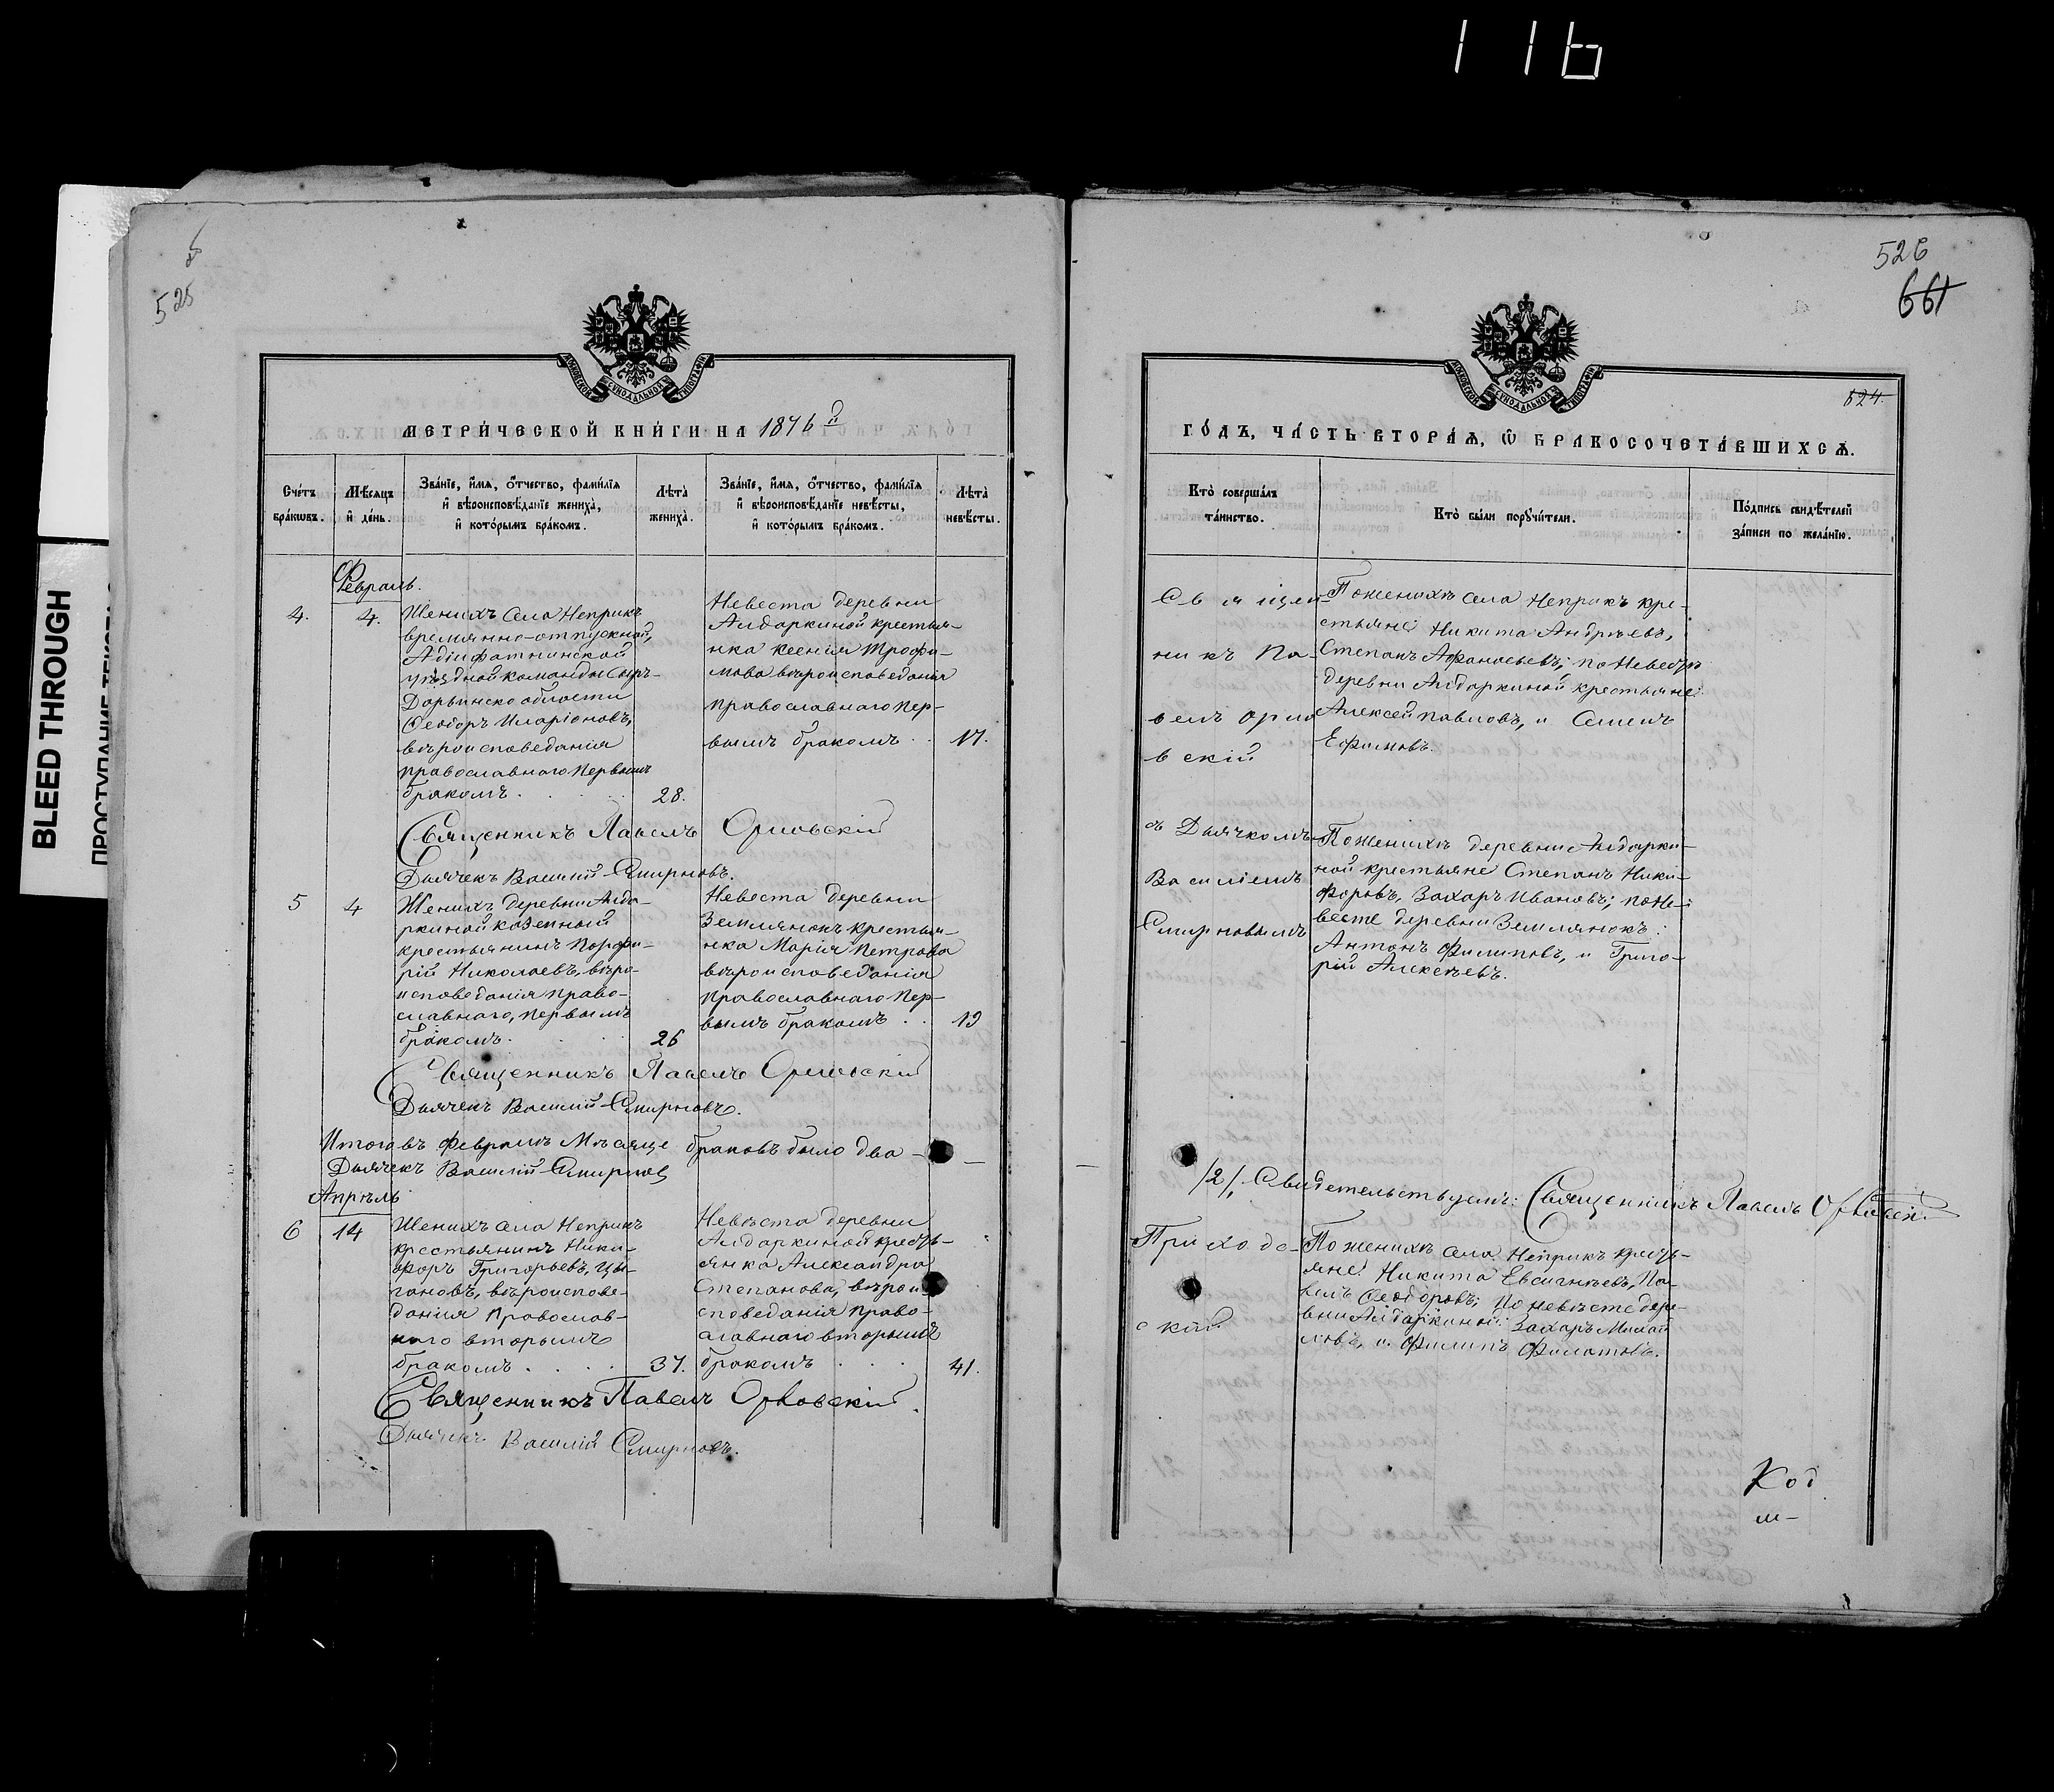 116
BLEED THROUGH
ПРОСТУПАНИЕ ТЕКСТА
525
МЕТРИ́ЧЕСКОЙ КНИ́ГИ НА 1876 й
Сче́тъ бра́кѡвъ.
Мѣ́сяцъ и́ де́нь.
Зва́нїе, и́мѧ, ѻ҆́тчество, фами́лїѧ
и҆ вѣроисповѣ́данїе жениха̀,
и҆ кото́рымъ бра́комъ.
Лѣ́та жениха̀.
Зва́нїе, и́мѧ, ѻ҆́тчество, фами́лїѧ
и҆ вѣроисповѣ́данїе невѣ́сты,
и҆ кото́рымъ бра́комъ.
Лѣ́та невѣ́сты.
Февраль.
4.
4.
Женихъ села Неприкъ
временно-отпускной,
уѣздной команды Сыръ-
Дарьинско области
Ѳеодоръ Иларіоновъ,
вѣроисповеданія
православнаго первымъ
бракомъ.
28.
Невеста деревни
Алдаркиной крестья-
нка Ксенія Трофи-
мова вѣроисповеданія
православнаго пер-
вымъ бракомъ
17.
Священникъ Павелъ Орловскій
Дьячекъ Василій Смирновъ.
5
4
Женихъ деревни Алда-
ркиной казенный
крестьянинъ Порфи-
рій Николаевъ, вѣро-
исповеданія право-
славнаго, первымъ
бракомъ.
26
Невеста деревни
Землянокъ крестья-
нка Марія Петрова
вѣроисповеданія
православнаго пер-
вымъ бракомъ
19
Священникъ Павелъ Орловскій
Дьячекъ Василій Смирновъ.
Итого въ Февралѣ Мѣсяце браковъ было два —
Дьячекъ Василій Смирновъ
Апрѣль
6
14
Женихъ села Неприкъ
крестьянинъ Ники-
форъ Григорьевъ, Цы-
гановъ, вѣроиспове-
данія Православ-
наго вторымъ
бракомъ
37.
Невѣста деревни
Алдаркиной кресть-
янка Александра
Степанова, вѣрои-
споведанія право-
славнаго вторымъ
бракомъ
41.
Священникъ Павелъ Орловскій.
Дьячекъ Василій Смирновъ.
526
661
624.
ГО́ДЪ, ЧА́СТЬ ВТОРА́Ѧ, Ѡ҆ БРАКОСОЧЕТА́ВШИХСѦ.
Кто̀ соверша́лъ
та́инство.
Кто̀ бы́ли порꙋчи́тели.
По́дпись свидѣ́телей
за́писи по жела́нїю.
Священ-
никъ Па-
велъ Орло
вскій
съ Дьячкомъ
Василіемъ
Смирновымъ
По женихѣ села Неприкъ кре-
стьяне Никита Андрѣевъ,
Степанъ Афанасьевъ; по Невестѣ
деревни Алдаркиной крестьяне:
Алексей Павловъ, и Семенъ
Ефимовъ.
По женихѣ деревни Алдарки-
ной крестьяне Степанъ Ники-
форовъ, Захаръ Ивановъ; по Не-
весте деревни Землянокъ:
Антонъ Филиповъ, и Григо-
рій Алексѣевъ.
/2/, Свидетельствуемъ: Священникъ Павелъ Орловскій
Приходс-
скій
По женихѣ села Неприкъ кресть-
яне: Никита Евсигнѣевъ, Па-
велъ Ѳеодоровъ; По невѣсте дере-
вни Алдаркиной: Захаръ Михай
ловъ, и Филипъ Филатовъ.